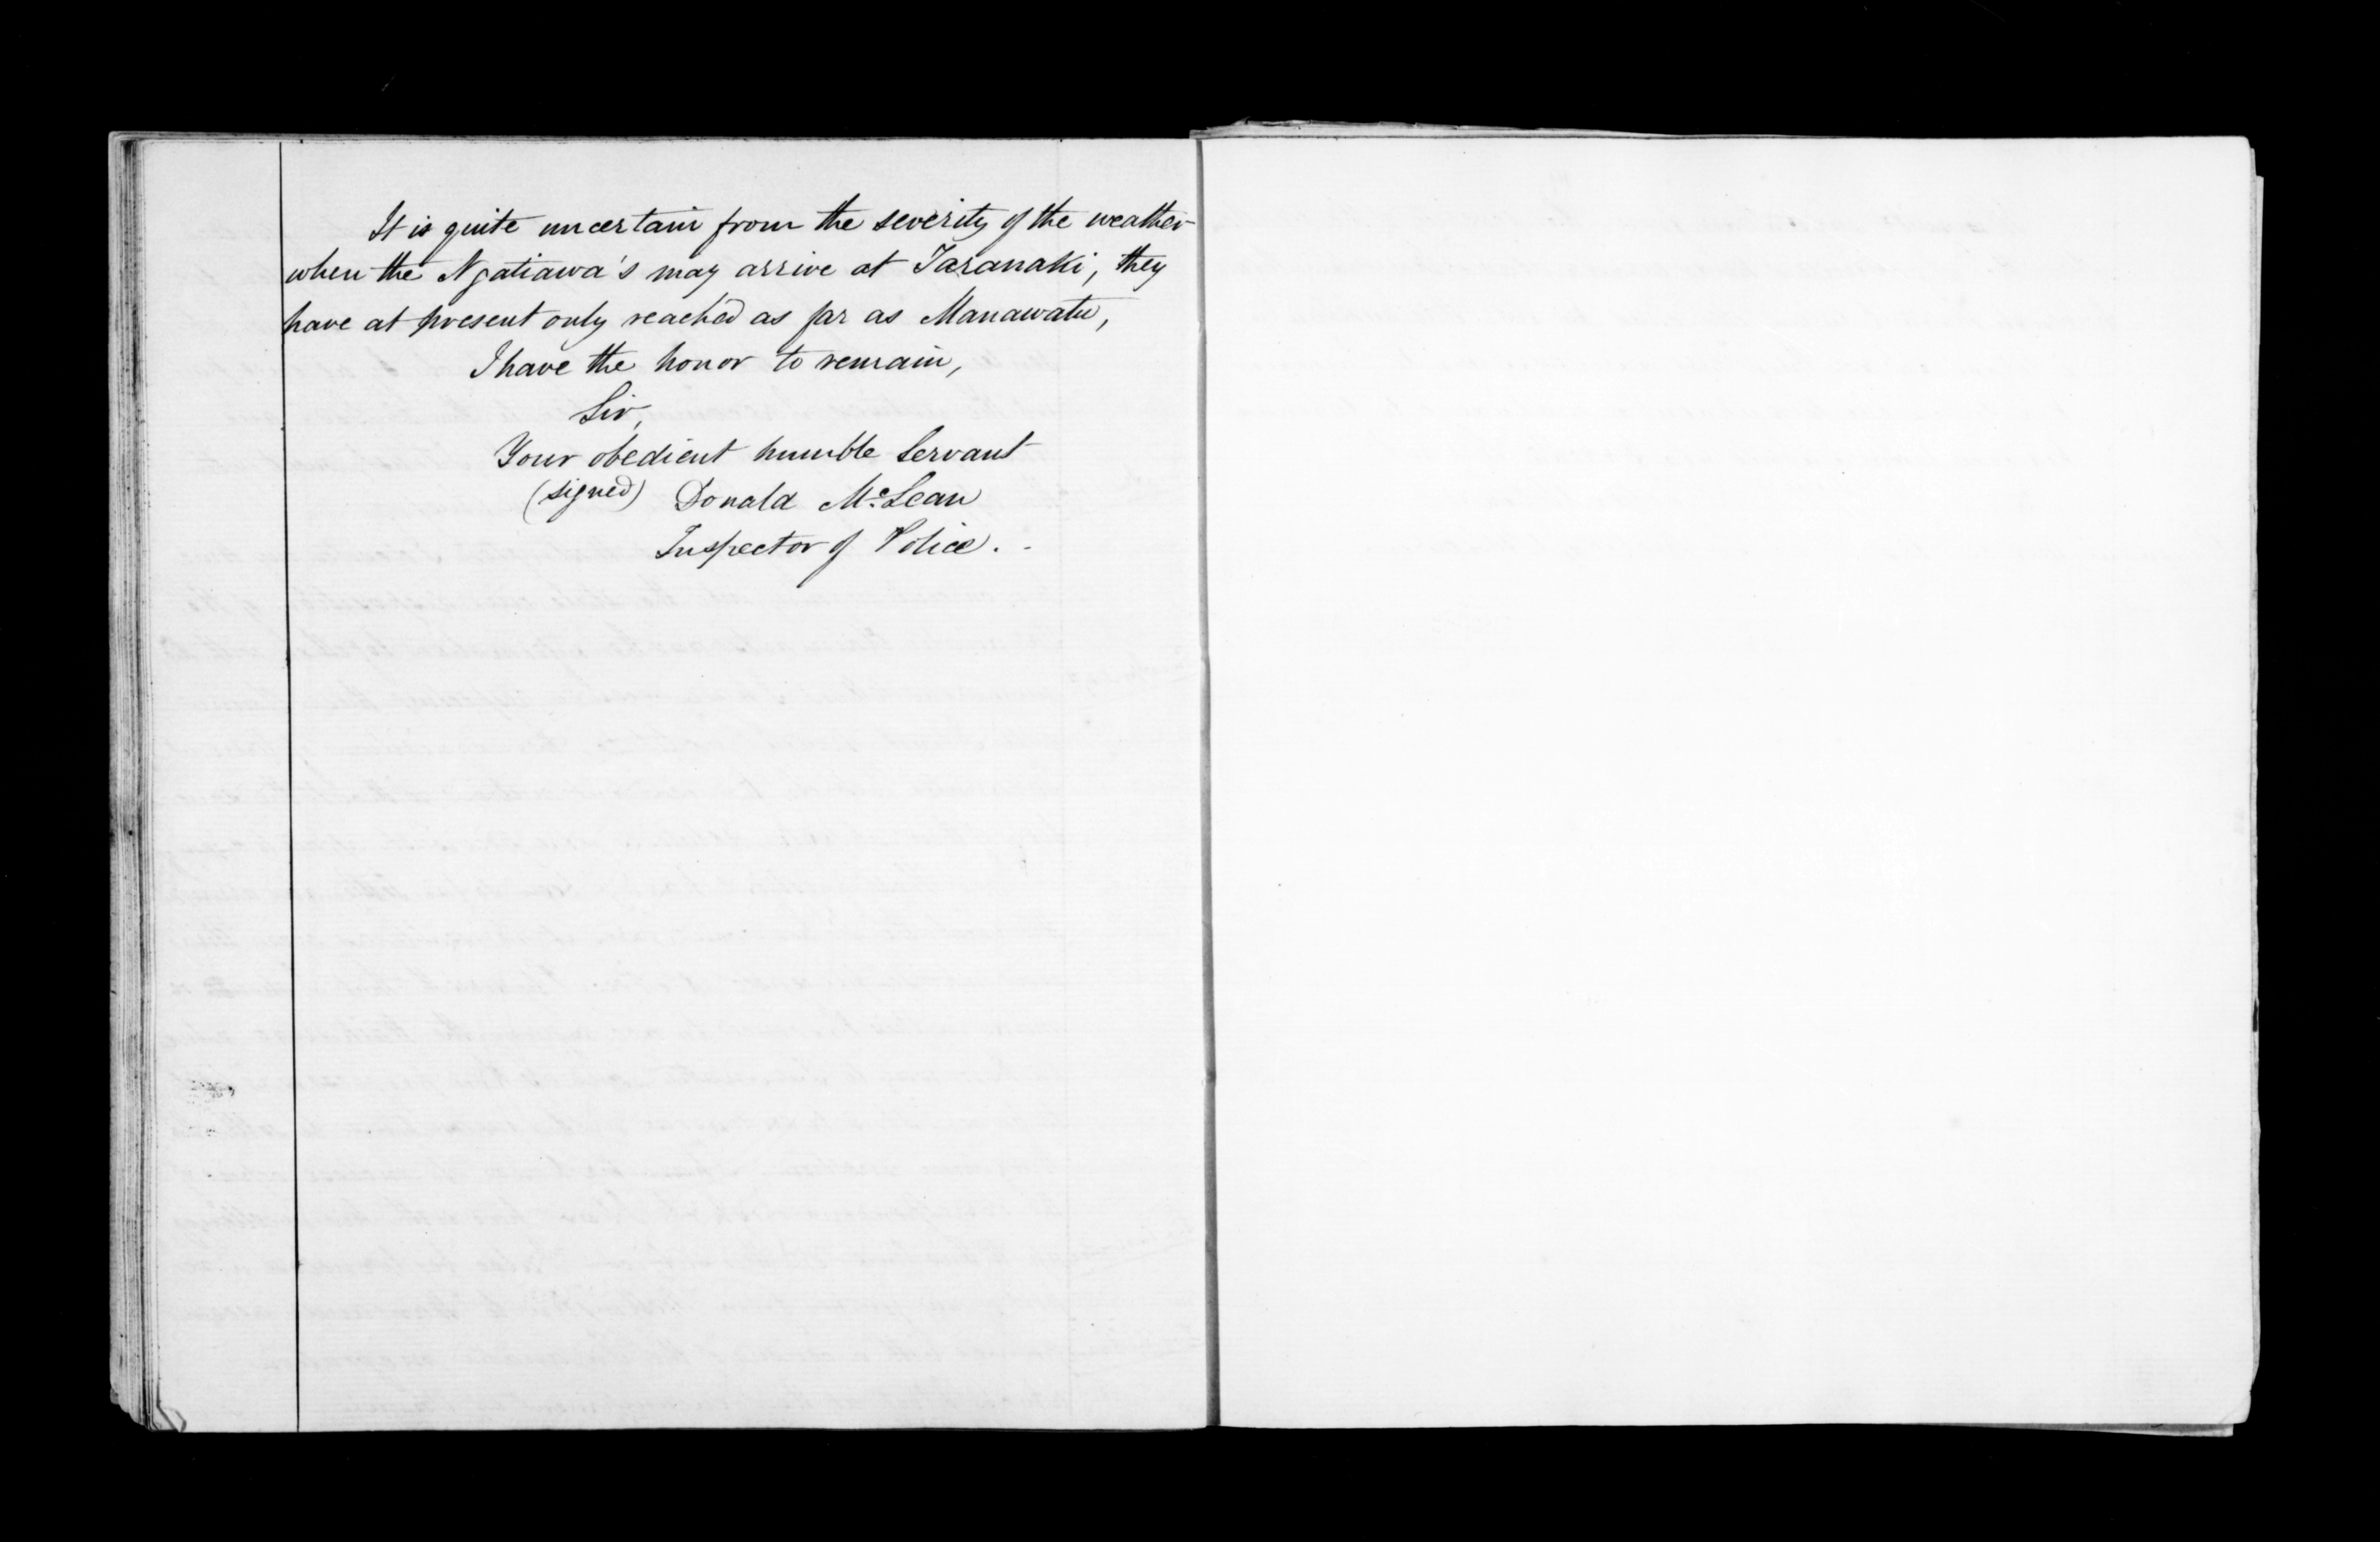 It is quite uncertain from the severity of the weather
when the Ngatiawa's may arrive at Taranaki, they
have at present only reached as far as Manawatu,
I have the honor to remain,
Sir,
Your obedient humble Servant
(signed) Donald McLean
Inspector of Police. -